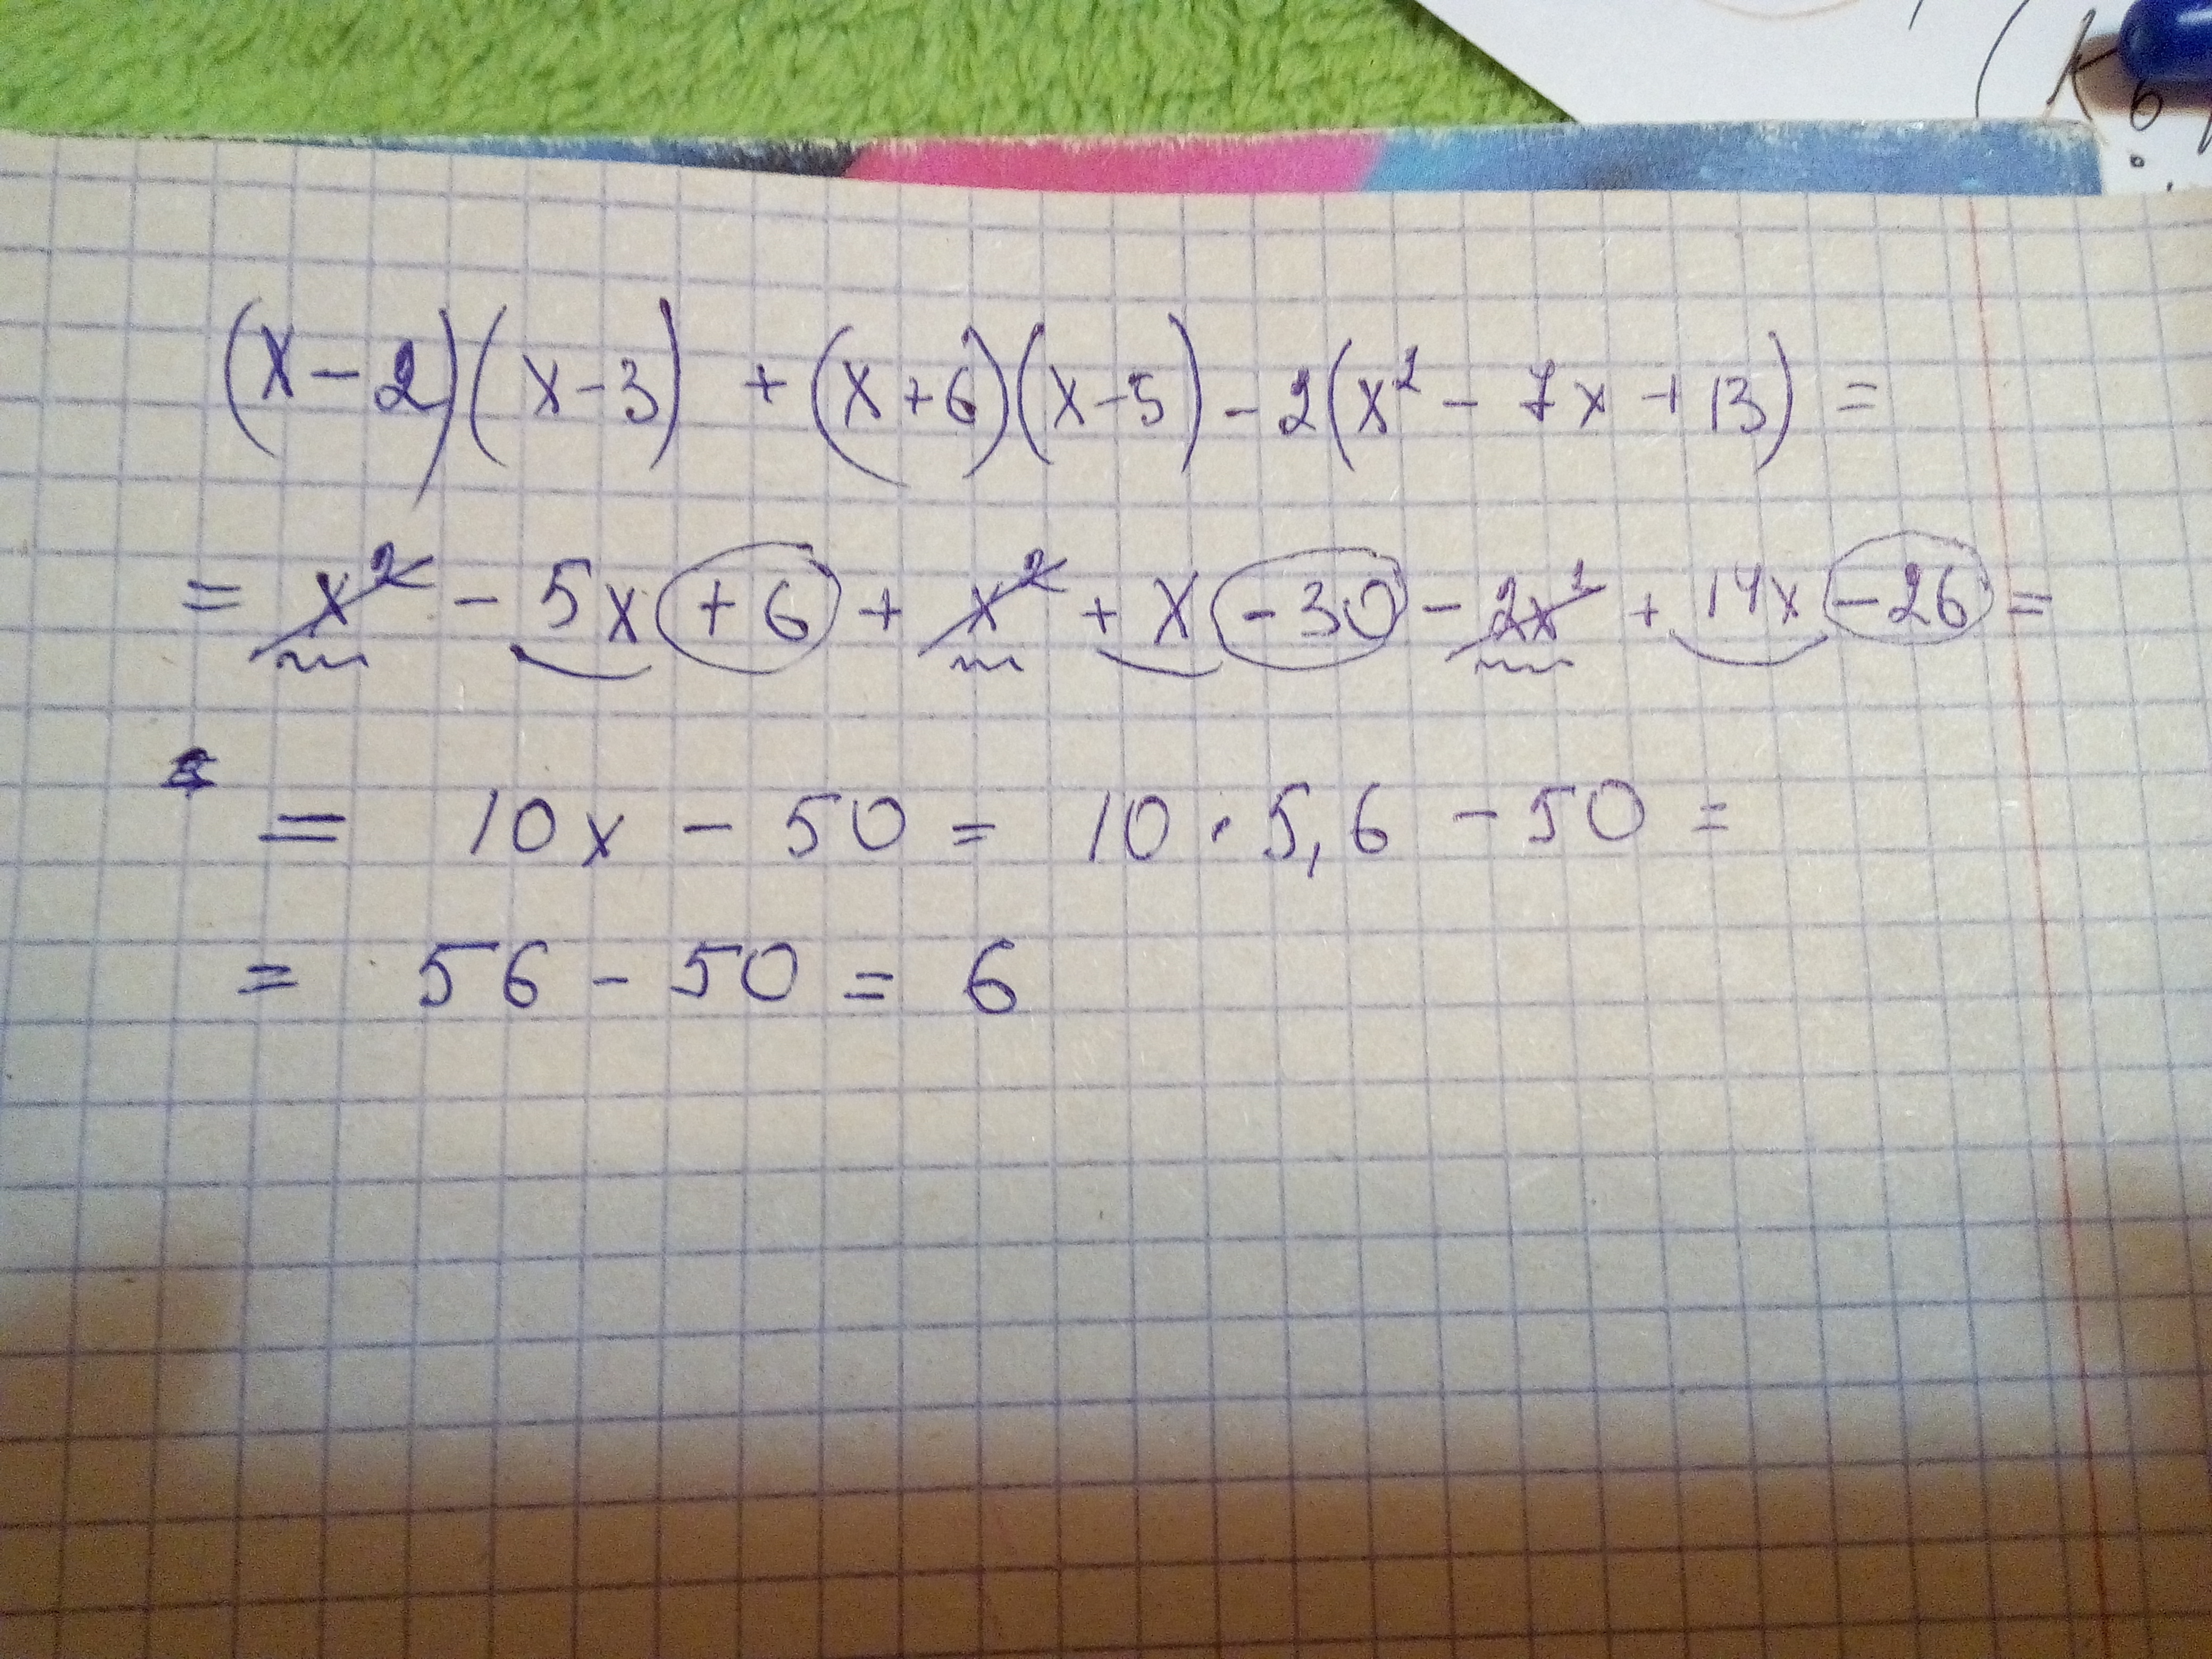 (x-2)(x-3) + (x+6)(x-5) - 2(x² - 7x + 13) =
= x² - 5x + 6 + x² + x - 30 - 2x² + 14x - 26 =
= 10x - 50 = 10 · 5,6 - 50 =
= 56 - 50 = 6